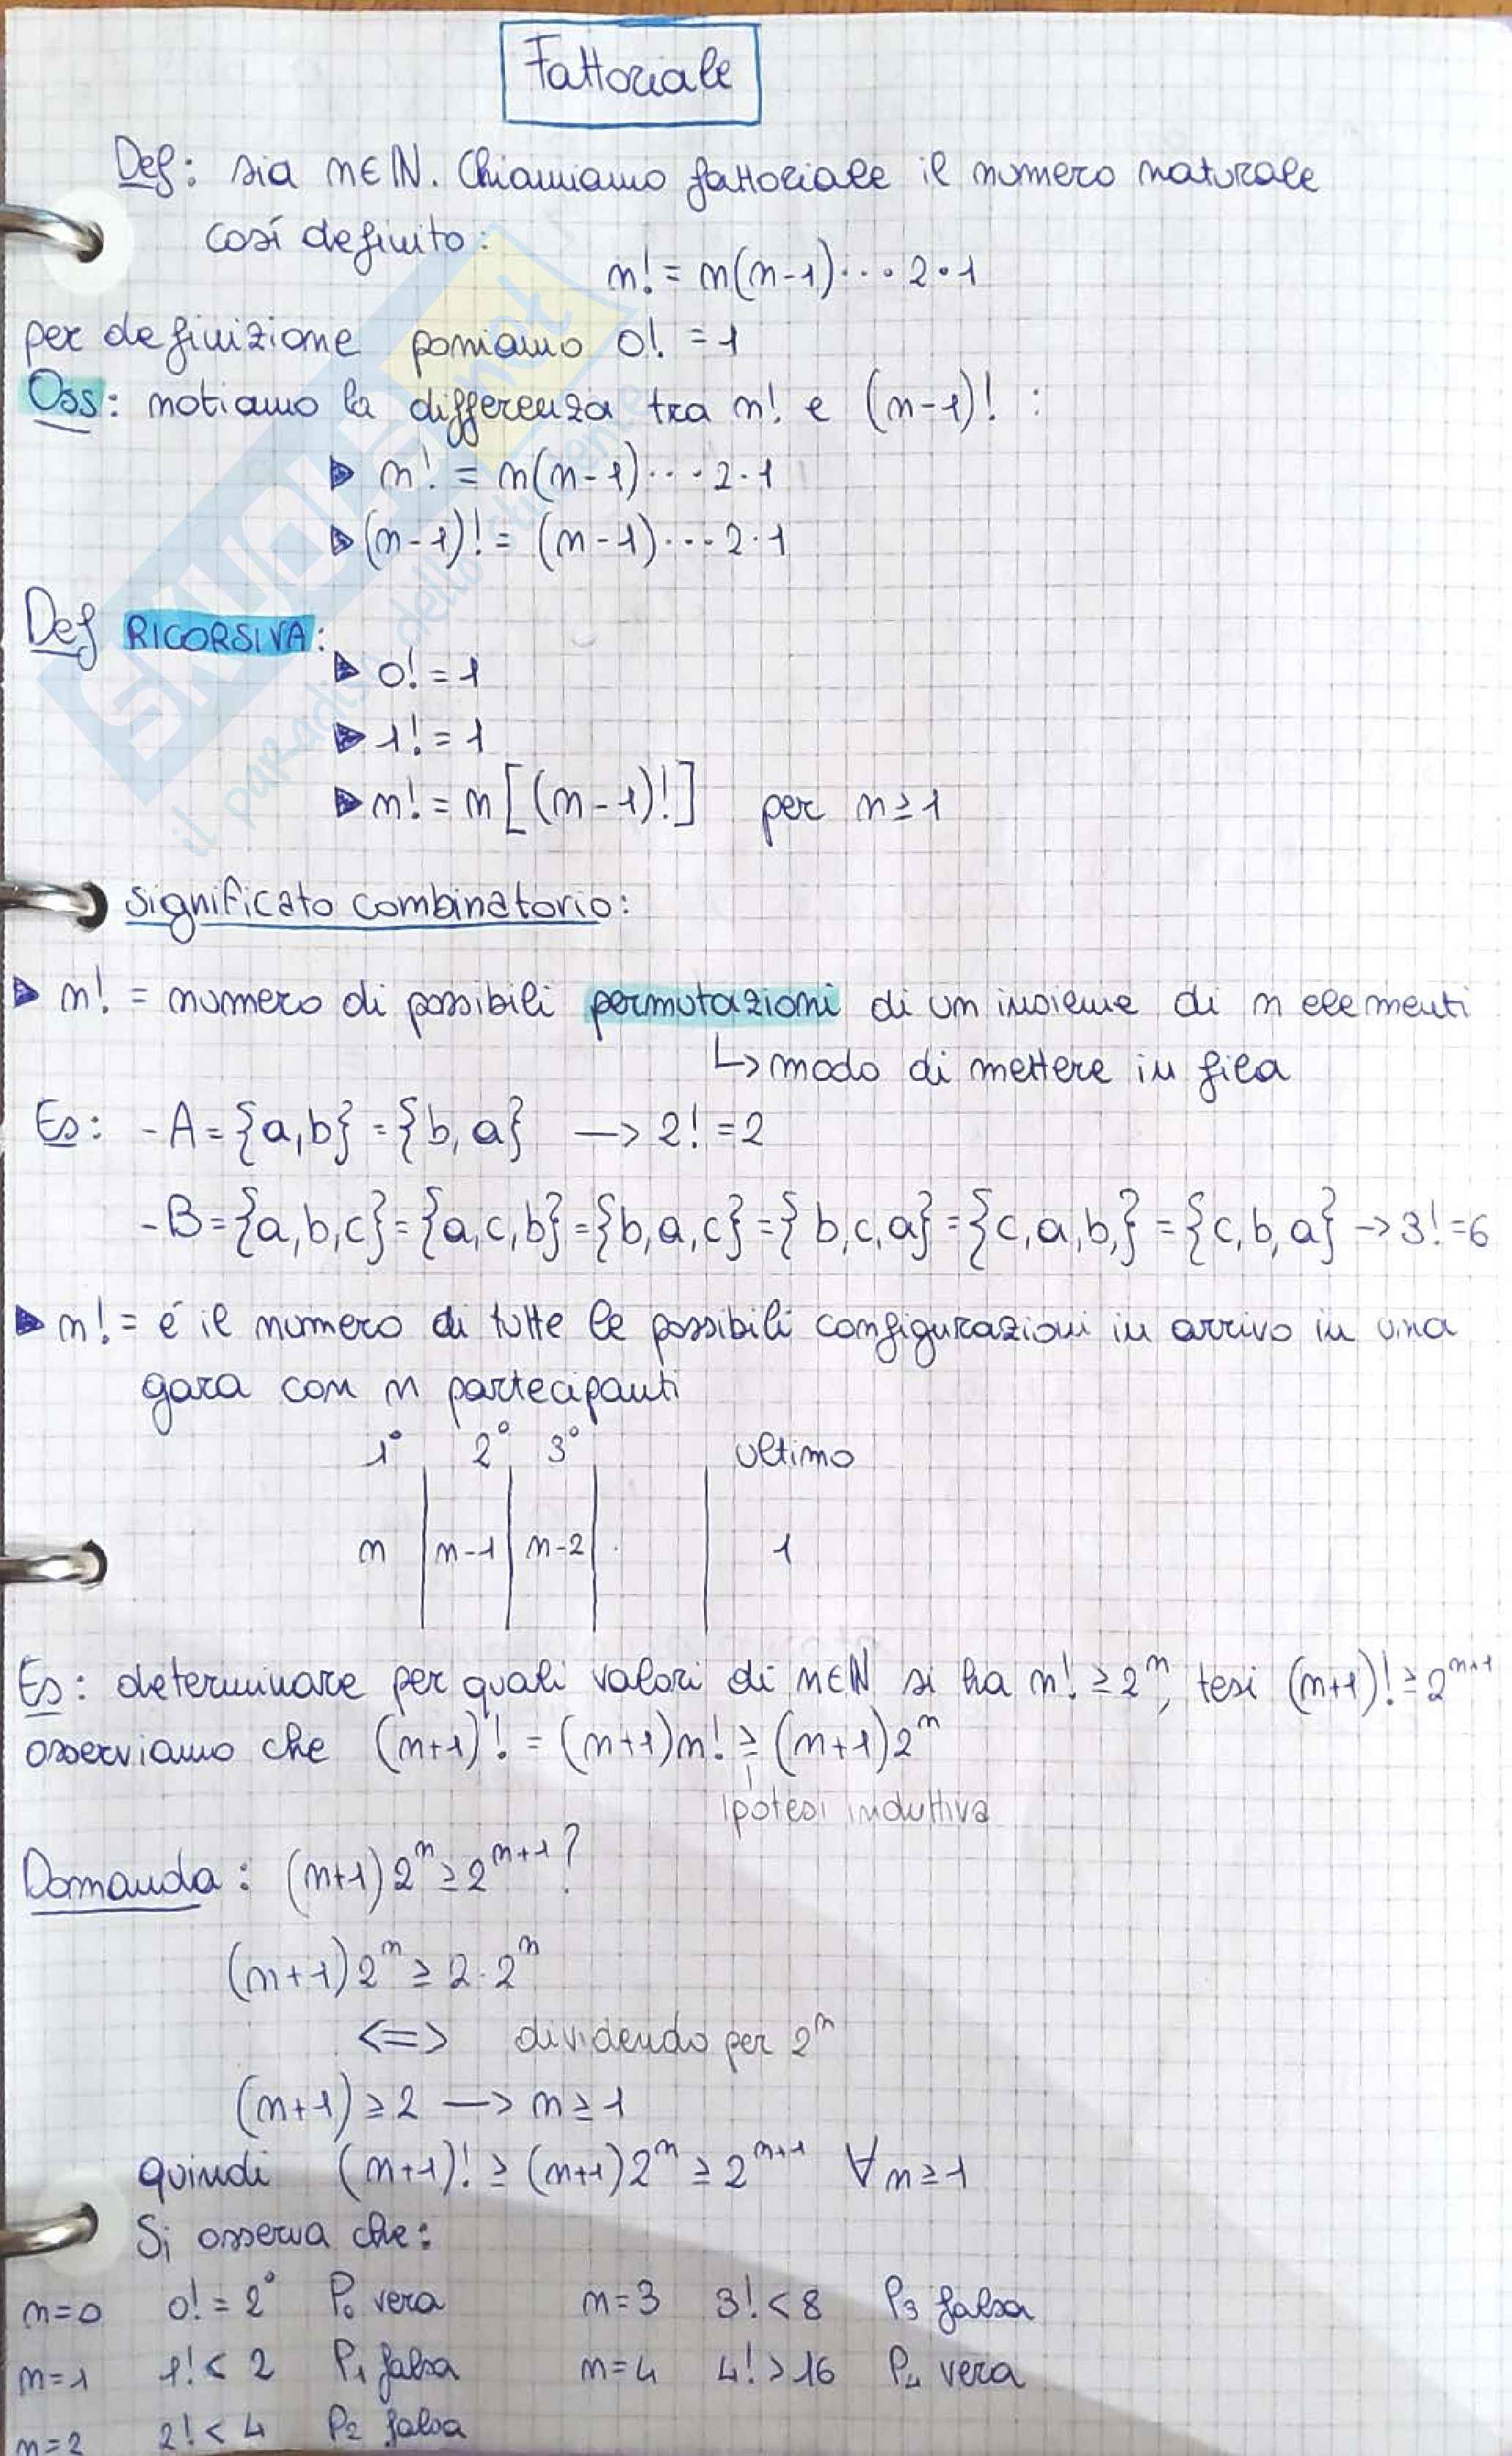 Fattoriale
Def: sia n∈ℕ. Chiamiamo fattoriale il numero naturale
così definito:
n! = n(n-1)···2·1
per definizione poniamo 0! = 1
Oss: notiamo la differenza tra n! e (n-1)! :
▶ n! = n(n-1)···2·1
▶ (n-1)! = (n-1)···2·1
Def RICORSIVA:
▶ 0! = 1
▶ 1! = 1
▶ n! = n[(n-1)!] per n≥1
significato combinatorio:
▶ n! = numero di possibili permutazioni di un insieme di n elementi
↳ modo di mettere in fila
Es: - A = {a,b} = {b,a} → 2! = 2
- B = {a,b,c} = {a,c,b} = {b,a,c} = {b,c,a} = {c,a,b,} = {c,b,a} → 3! = 6
▶ n! = é il numero di tutte le possibili configurazioni in arrivo in una
gara con n partecipanti
1° 2° 3° ultimo
n | n-1 | n-2 | . | 1
Es: determinare per quali valori di n∈ℕ si ha n! ≥ 2ⁿ, tesi (n+1)! ≥ 2ⁿ⁺¹
osserviamo che (n+1)! = (n+1)n! ≥ (n+1)2ⁿ
ipotesi induttiva
Domanda: (n+1)2ⁿ ≥ 2ⁿ⁺¹?
(n+1)2ⁿ ≥ 2·2ⁿ
<=> dividendo per 2ⁿ
(n+1) ≥ 2 → n ≥ 1
quindi (n+1)! ≥ (n+1)2ⁿ ≥ 2ⁿ⁺¹ ∀n≥1
Si osserva che:
n=0 0! = 2⁰ P₀ vera n=3 3! < 8 P₃ falsa
n=1 1! < 2 P₁ falsa n=4 4! > 16 P₄ vera
n=2 2! < 4 P₂ falsa
SKUOLA.net
il paradiso dello studente